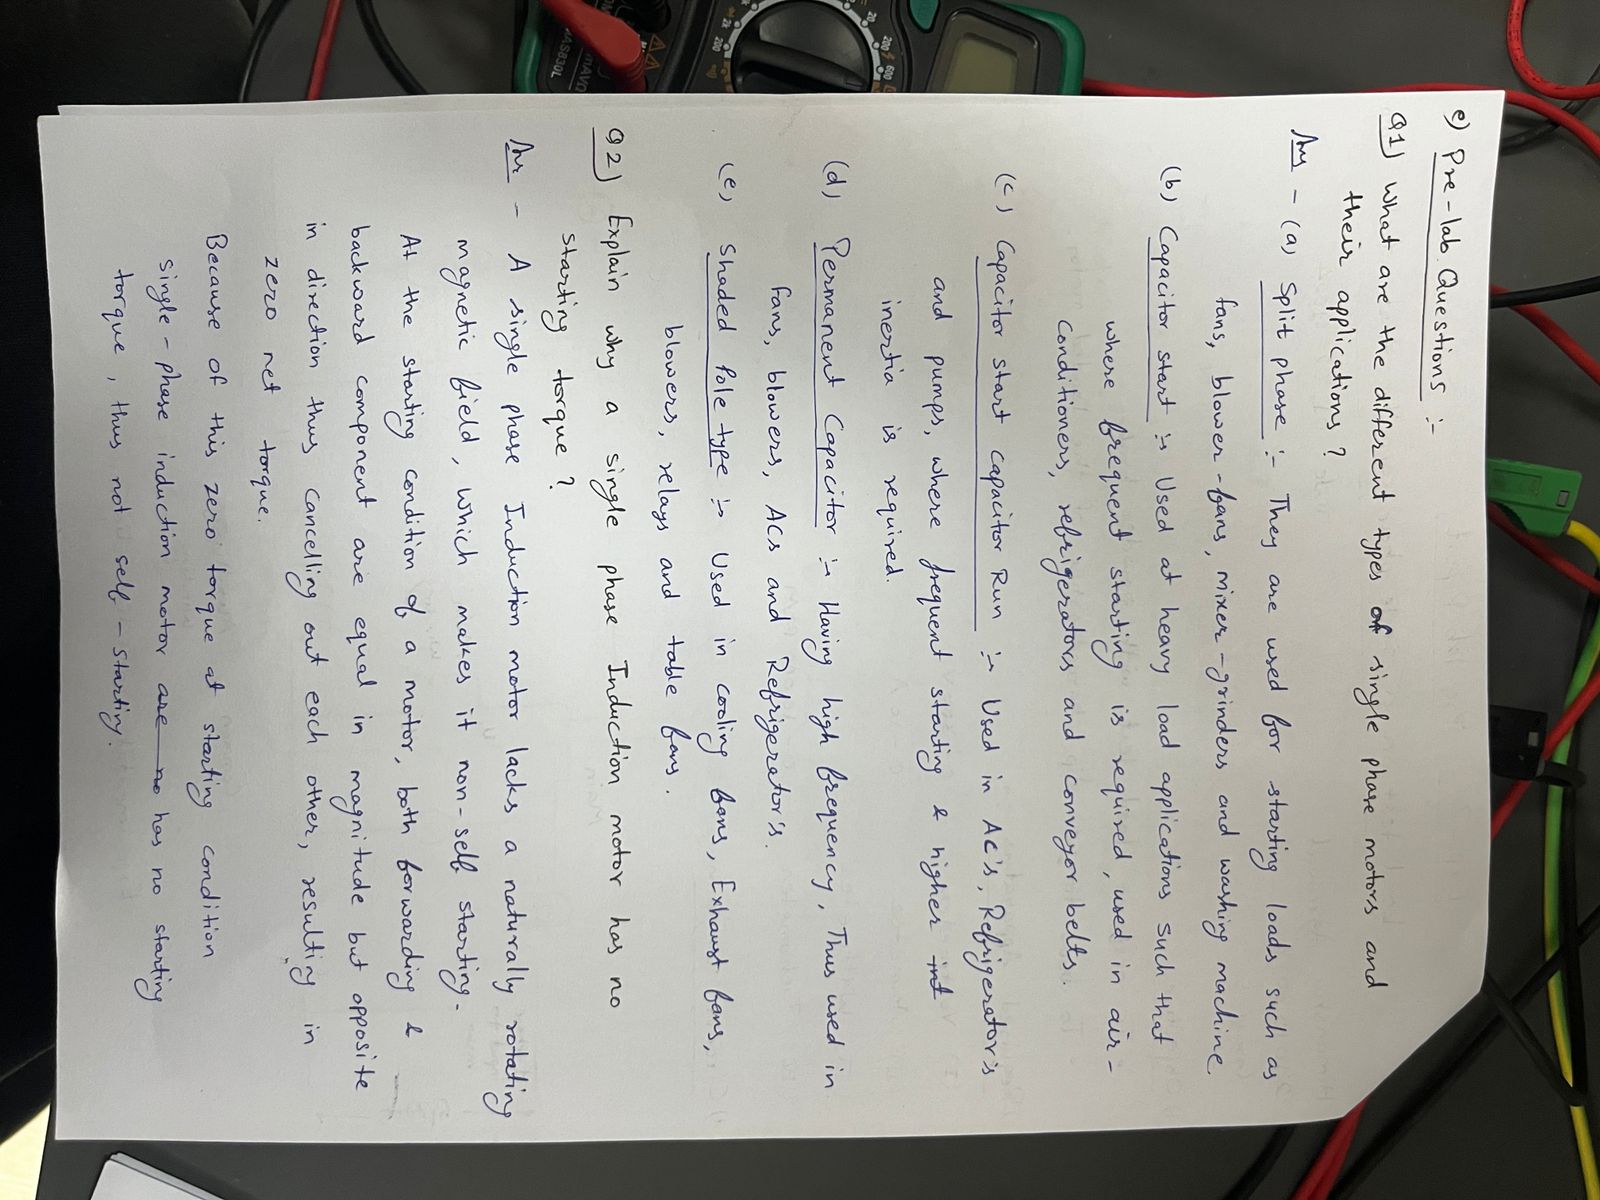 e) Pre-lab Questions :-
Q1) What are the different types of single phase motors and
their applications ?
Ans - (a) Split phase :- They are used for starting loads such as
fans, blower-fans, mixer-grinders and washing machine
(b) Capacitor start :- Used at heavy load applications such that
where frequent starting is required, used in air-
conditioners, refrigerators and conveyor belts.
(c) Capacitor start capacitor Run :- Used in AC's, Refrigerator's
and pumps, where frequent starting & higher int
inertia is required.
(d) Permanent Capacitor :- Having high frequency, Thus used in
fans, blowers, ACs and Refrigerator's.
(e) Shaded Pole type :- Used in cooling fans, Exhaust fans,
blowers, relays and table fans.
Q2) Explain why a single phase Induction motor has no
starting torque ?
Ans - A single phase Induction motor lacks a naturally rotating
magnetic field, which makes it non-self starting.
At the starting condition of a motor, both forwarding &
backward component are equal in magnitude but opposite
in direction thus cancelling out each other, resulting in
zero net torque.
Because of this zero torque at starting condition
single-phase induction motor are no has no starting
torque, thus not self-starting.
200 600
20
2k 200
mAVΩ
MAS830L